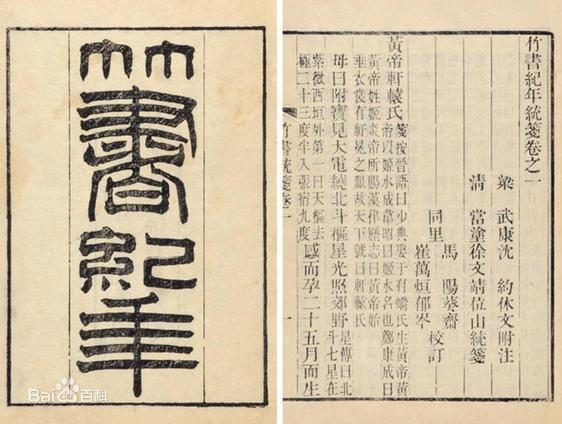 竹書紀年
竹書紀年統箋卷之一
梁 武康沈 約休文附注
清 當塗徐文靖位山統箋
馬 陽葵齋
同里 校訂
崔萬烜郁岑
黃帝軒轅氏
箋按晉語曰少典娶于有蟜氏生黃帝黃
帝以姬水成韋昭曰姬水名也鄭康成曰
黃帝姓姬炎帝所賜漢律歷志曰黃帝始
垂衣裳有軒冕之服故天下號曰軒轅氏
母曰附寶見大電繞北斗樞星光照郊野
星傳曰北
斗七星在
紫微西垣外第一曰天樞去
極二十三度半入張宿九度
感而孕二十五月而生
竹書統箋卷一
一
Bai百科